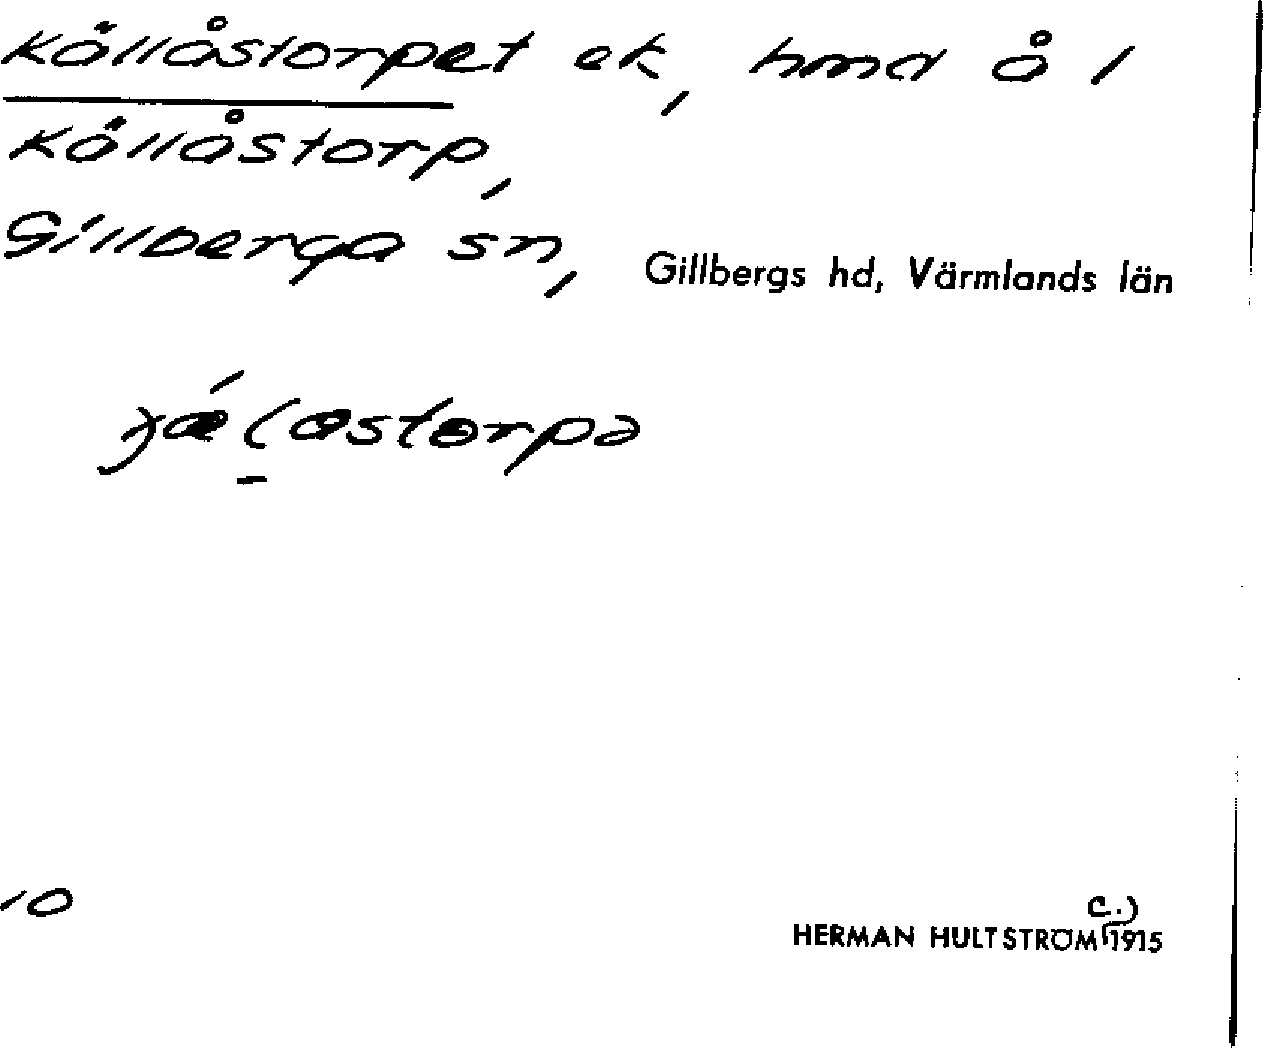 Källåstorpet ek, hmd å 1
Källåstorp,
Gillberga sn, Gillbergs hd, Värmlands län
10
c.)
HERMAN HULTSTRÖM 1915